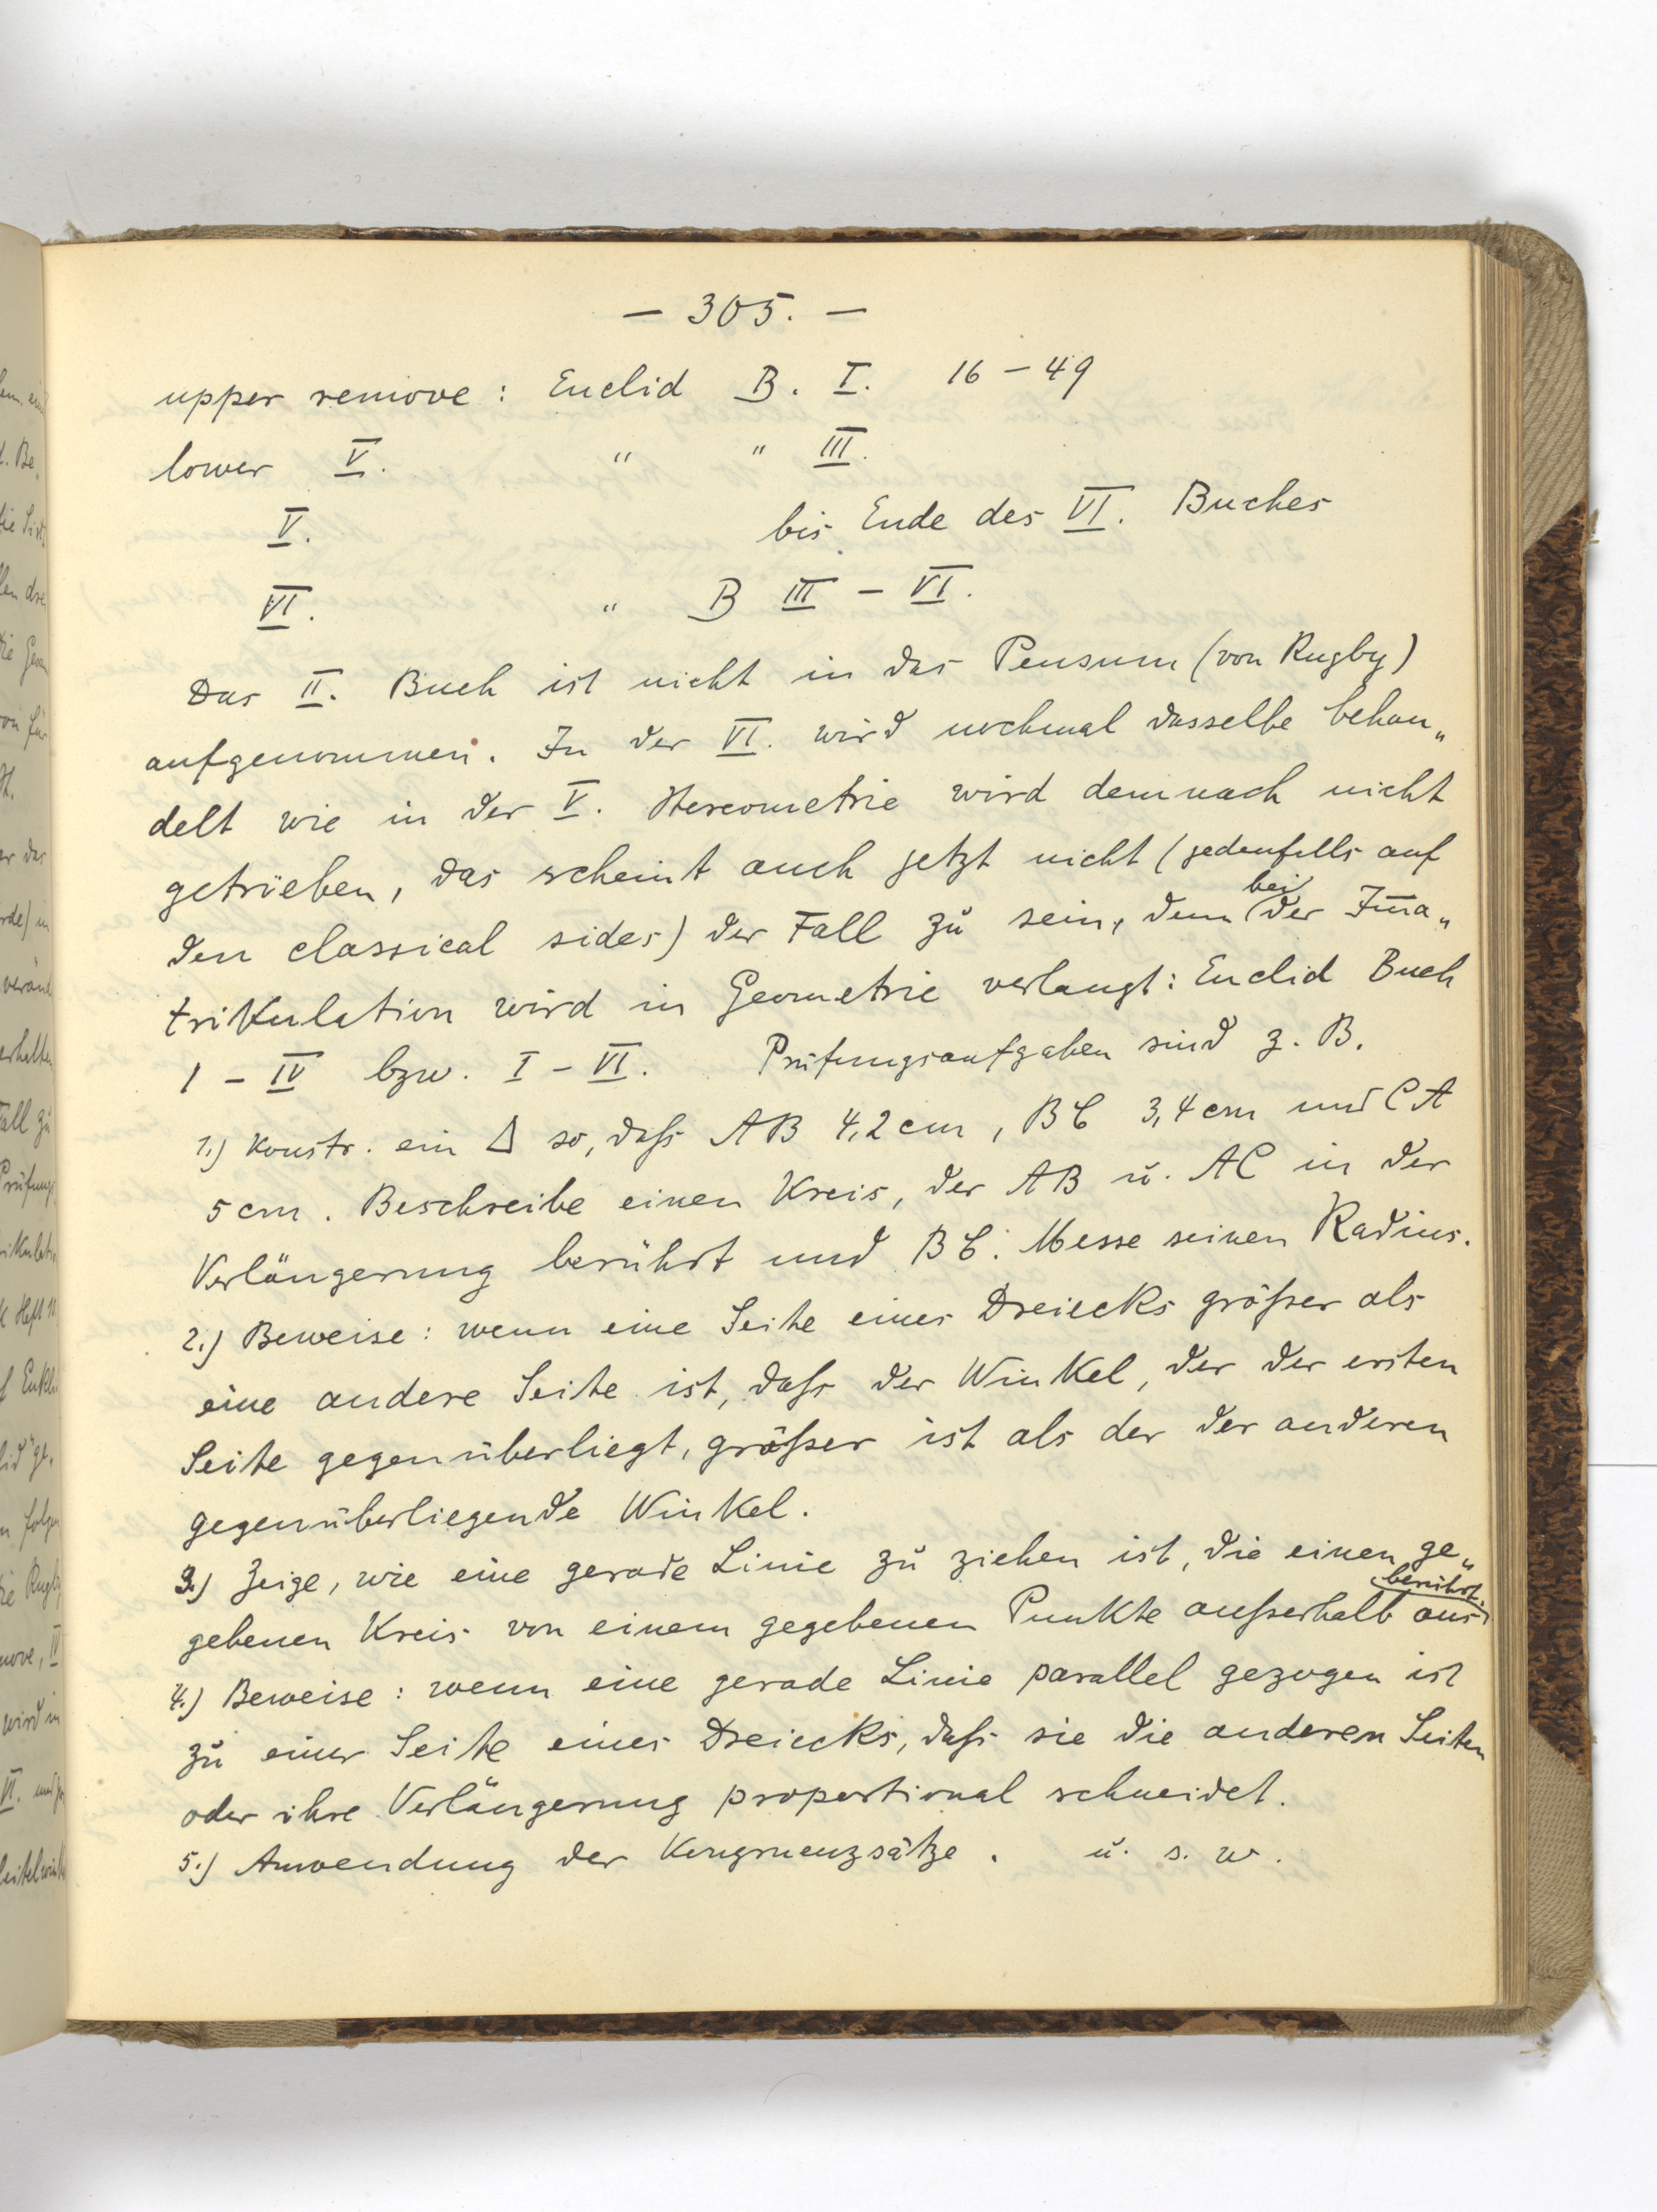 — 305. —
upper remove: Euclid B. I. 16 – 49
lower V. " " III.
V. bis Ende des VI. Buches
VI. " B III – VI.
Das II. Buch ist nicht in das Pensum (von Rugby)
aufgenommen. In der VI. wird nochmal dasselbe behan„
delt wie in der V. Stereometrie wird demnach nicht
getrieben, das scheint auch jetzt nicht (jedenfalls auf
den classical sides) der Fall zu sein, denn bei der Imma„
trikulation wird in Geometrie verlangt: Euclid Buch
I – IV bzw. I – VI. Prüfungsaufgaben sind z. B.
1.) Konstr. ein Δ so, daß AB 4,2 cm, BC 3,4 cm und CA
5 cm. Beschreibe einen Kreis, der AB u. AC in der
Verlängerung berührt und BC. Messe seinen Radius.
2.) Beweise: wenn eine Seite eines Dreiecks größer als
eine andere Seite ist, daß der Winkel, der der ersten
Seite gegenüberliegt, größer ist als der der anderen
gegenüberliegende Winkel.
3.) Zeige, wie eine gerade Linie zu ziehen ist, die einen ge„
gebenen Kreis von einem gegebenen Punkte außerhalb aus berührt.
4.) Beweise: wenn eine gerade Linie parallel gezogen ist
zu einer Seite eines Dreiecks, daß sie die anderen Seiten
oder ihre Verlängerung proportional schneidet.
5.) Anwendung der Kongruenzsätze. u. s. w.